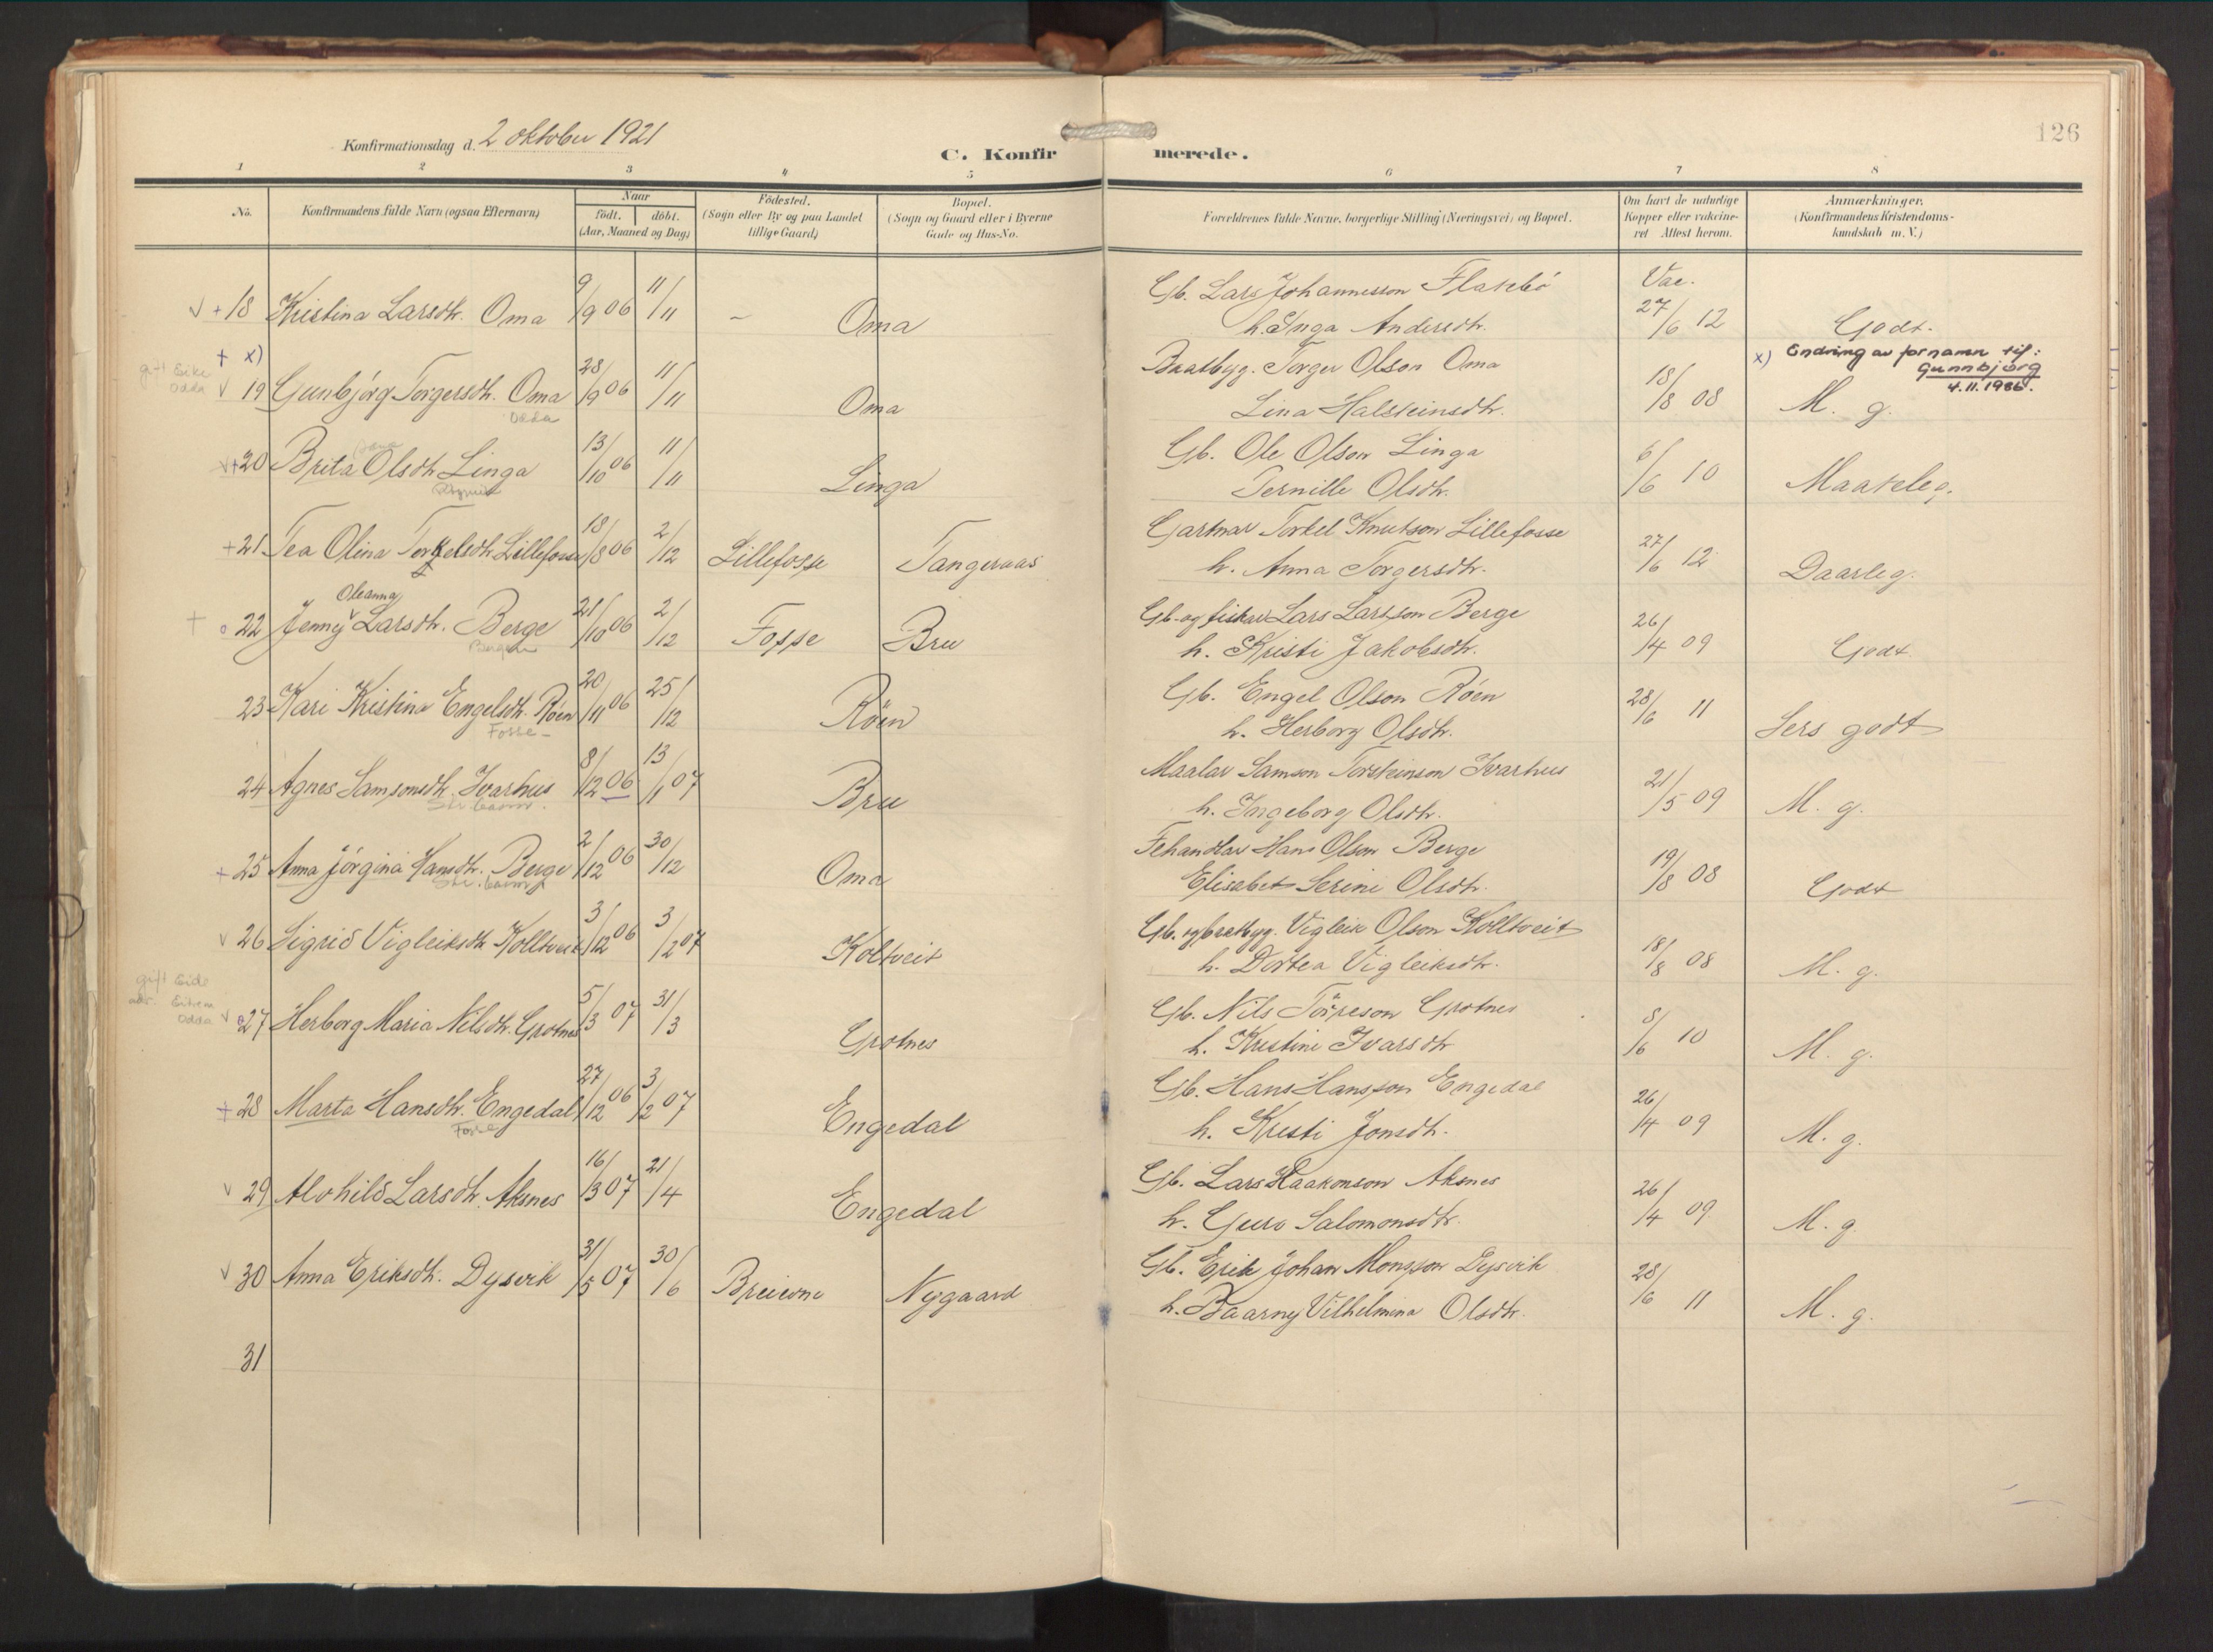 126
Konfirmationsdag d. 2 oktober 1921
C. Konfirmerede.
1 2 3 4 5 6 7 8
No. Konfirmandens fulde Navn (ogsaa Efternavn) Naar Födested. Bopæl. Forældrenes fulde Navne, borgerlige Stilling (Næringsvei) og Bopæl. Om havt de naturlige Anmærkninger.
födt. döbt. (Sogn eller By og paa Landet (Sogn og Gaard eller i Byerne Kopper eller vakcine- (Konfirmandens Kristendoms-
(Aar, Maaned og Dag) tillige Gaard) Gade og Hus-No. ret Attest herom. kundskab m. V.)
Gb. Lars Johannesson Flatebö Vac.
√ + 18 Kristina Larsdtr. Oma 9/9 06 11/11 – Oma 27/6 12 Godt.
h. Inga Andersdtr.
+ x) Baatbyg. Torger Olson Oma x) Endring av fornamn til:
Gunnbjørg
4.11.1986.
gift Eike
Odda √ 19 Gunbjörg Torgersdtr. Oma 28/9 06 11/11 Oma 18/8 08 M. g.
Odda
Lina Halsteinsdtr.
Gb. Ole Olson Linga
√+20 Brita Olsdtr Linga 13/10 06 11/11 Linga 6/6 10 Maateleg.
Pernille Olsdtr.
Gartnar Torkel Knutson Lillefosse
+21 Tea Olina Torkelsdtr Lillefosse 18/8 06 2/12 Lillefosse Tangeraas 27/6 12 Daarleg.
h. Anna Torgersdtr.
Oleanna
Gb. og fiskar Lars Larsson Berge
+ o 22 Jenny √ Larsdtr. Berge 21/10 06 2/12 Fosse Bru 26/4 09 Godt
Bergen
h. Kristi Jakobsdtr.
Gb. Engel Olson Röen
23 Kari Kristina Engelsdtr. Röen 20/11 06 25/12 Röen 28/6 11 Sers godt
Fosse –
h. Herborg Olsdtr.
Maalar Samson Torsteinson Ivarhus
24 Agnes Samsonsdtr. Ivarhus 8/12 06 13/1 07 Bru 21/5 09 M. g.
Str.barm.
h. Ingeborg Olsdtr.
Fehandlar Hans Olson Berge
+ 25 Anna Jörgina Hansdtr. Berge 2/12 06 30/12 Oma 19/8 08 Godt
Str.barm
Elisabet Serine Olsdtr.
Gb. og baatbyg. Vigleik Olson Kolltveit
√ 26 Sigrid Vigleiksdtr Kolltveit 3/12 06 3/2 07 Koltveit 18/8 08 M. g.
h. Dortea Vigleiksdtr.
gift Eide
adr. Eitrem
Odda
Gb. Nils Törreson Grotnes
√ o 27 Herborg Maria Nilsdtr. Grotnes 5/3 07 31/3 Grotnes 8/6 10 M. g.
h. Kristine Ivarsdtr
Gb. Hans Hansson Engedal
+ 28 Marta Hansdtr. Engedal 27/12 06 3/2 07 Engedal 26/4 09 M. g.
Fosse
h. Kristi Jonsdtr.
Gb. Lars Haakonson Aksnes
√ 29 Alvhild Larsdtr. Aksnes 16/3 07 21/4 Engedal 26/4 09 M. g.
h. Guro Salomonsdtr.
Gb. Erik Johan Monsson Dysvik
√ 30 Anna Eriksdtr. Dysvik 31/5 07 30/6 Breievne Nygaard 28/6 11 M. g.
h. Baarny Vilhelmina Olsdtr.
31